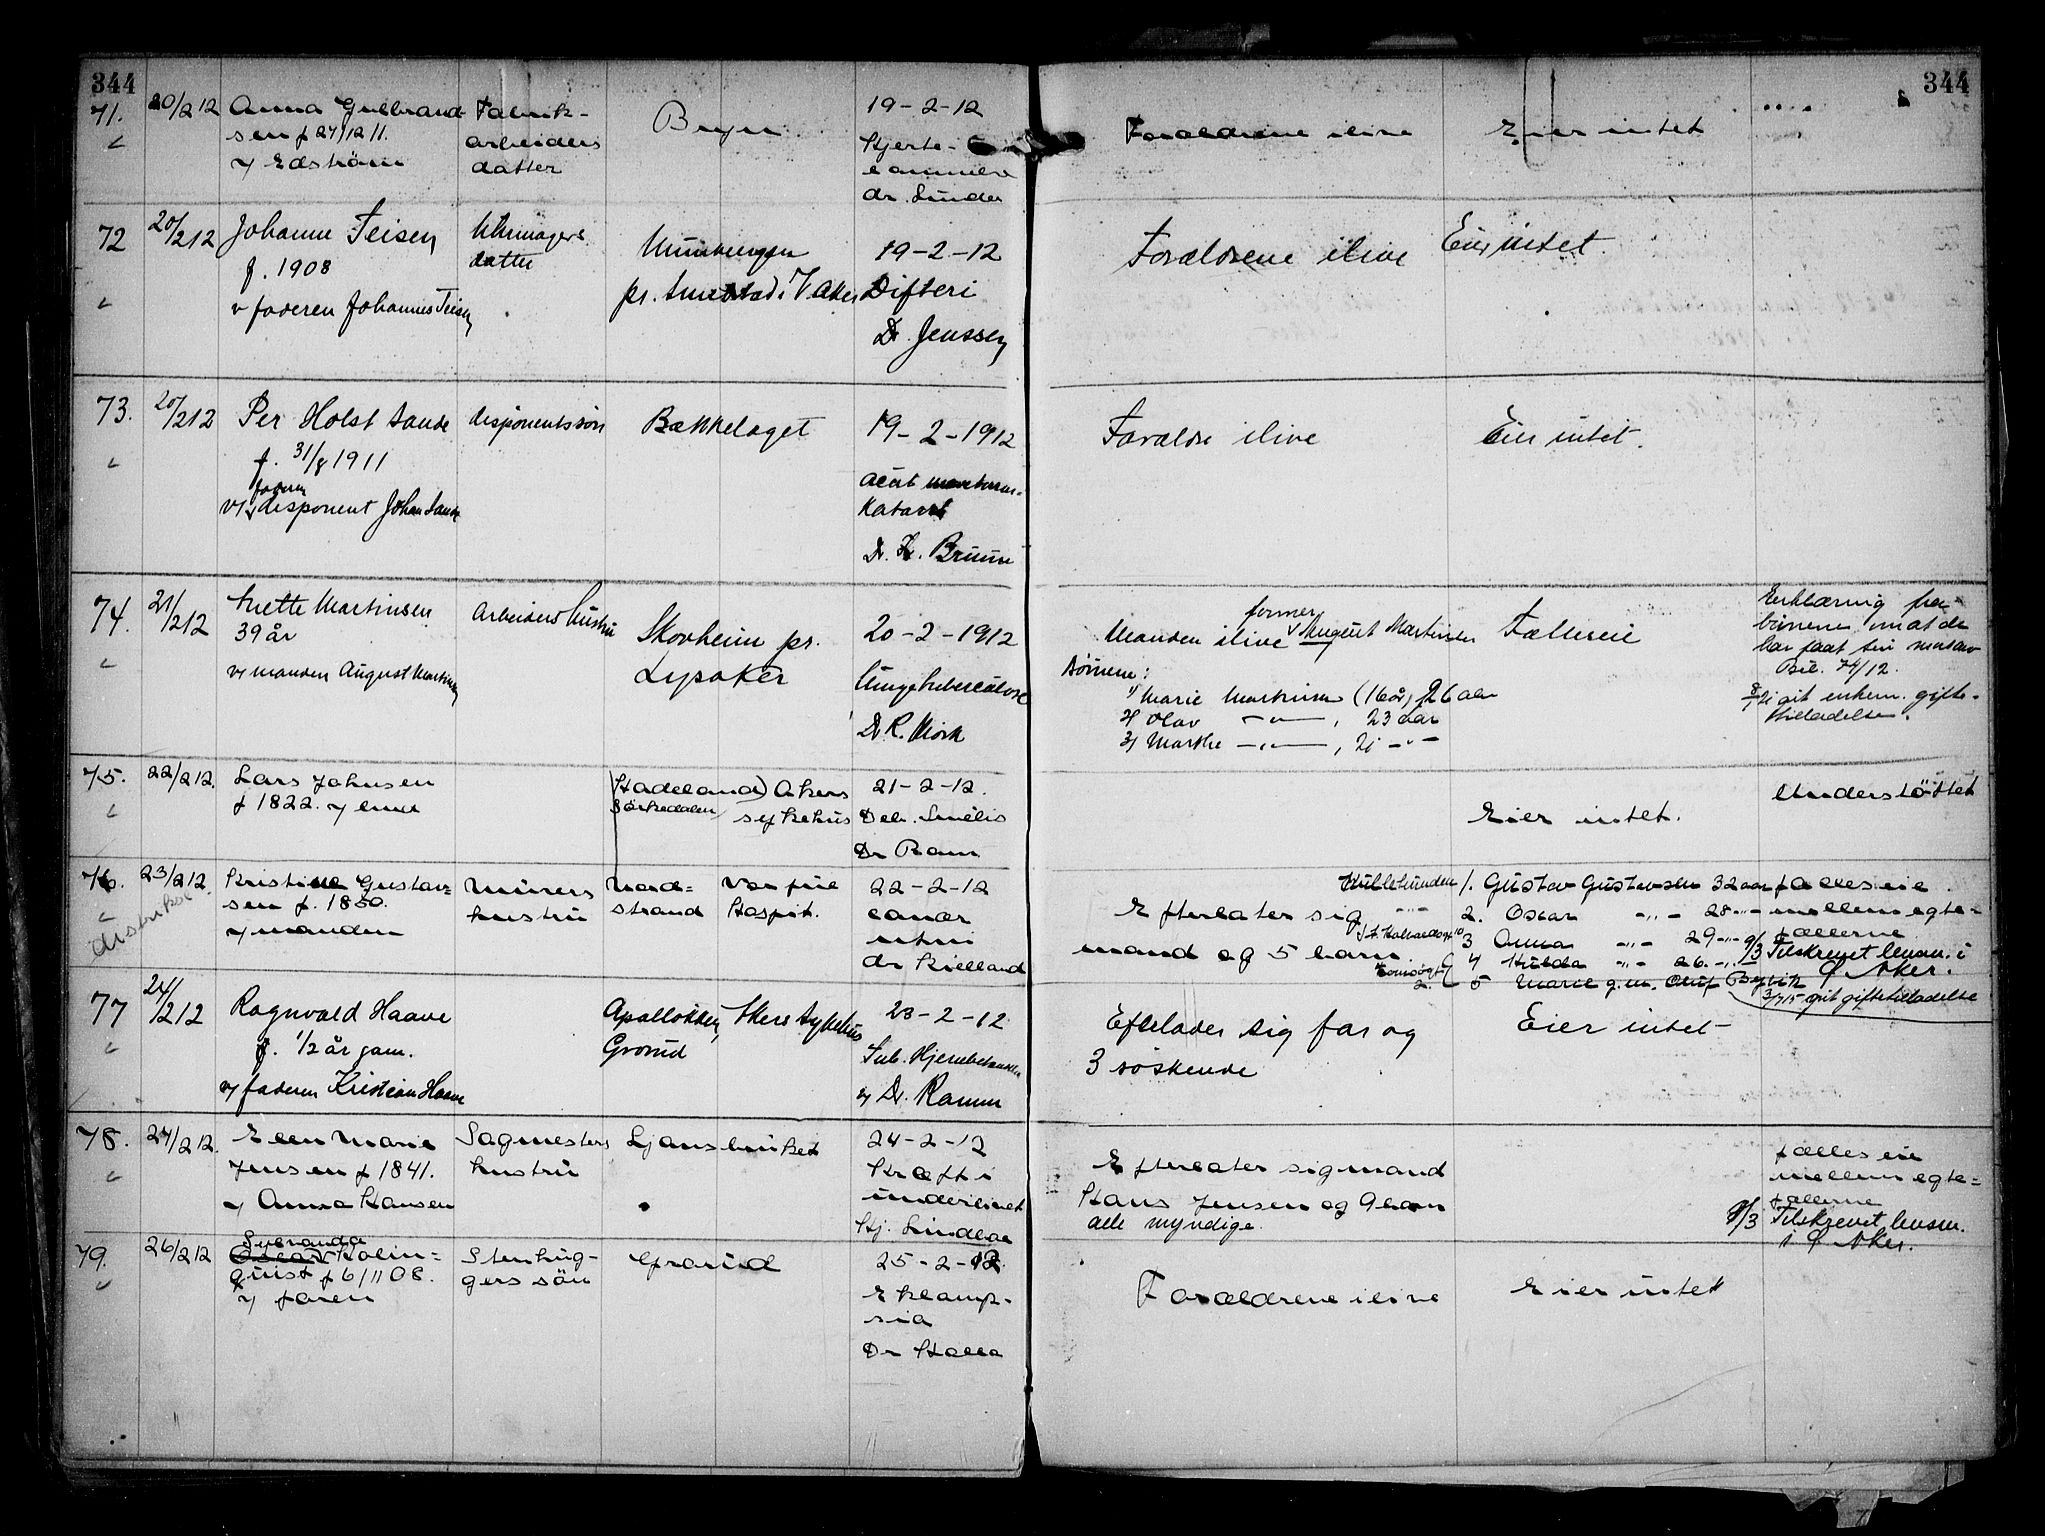 344
344
71. 20/2 12 Anna Gulbrand- Fabrik- Bryn 19-2-12
sen f 27/12 11. arbeiders Hjerte-
v/ Edström datter lammelse
dr. Linder
Forældrene ilive Eier intet
72 20/2 12 Johanne Teisen datter 19-2-12
f. 1908 Difteri
v faderen Johannes Teisen pr. Smestad i V Aker
Dr Jenssen
Forældrene ilive Eier intet.
73. 20/2 12 Per Holst Sande disponentssön Bækkelaget 19-2-1912
f. 31/8 1911 acut
faderen katarrh
v/ disponent Johan Sande Dr. Kr. Bruun
Forældre ilive Eier intet.
74. 21/2 12 Mette Martinsen arbeiders hustru Skovheim pr. 20-2-1912
39 år Lysaker
v/ manden August Martinsen Lungetuberculose
Dr R. Mork
former
Manden ilive August Martinsen Fælleseie
Börnene:
1/ Marie Martinsen (16 år), 26 aar
2/ Olav -"- , 23 aar
3/ Marthe -"- , 21 -"-
Erklæring fra
börnene om at de
har faat sin morsarv
Bil. 74/12.
git enkem. gifte-
tilladelse.
75. 22/2 12. Lars Johnsen (Hadeland) Akers 21-2-12.
f 1822. v/ Sörkedalen sykehus Deb. Senilis
Dr Ramm
Eier intet. Understöttet
76. 23/2 12. Kristine Gustav- Murers Nord- Vor frue 22-2-12
sen f. 1850. hustru strand Hospit. cancer
v/ manden uteri
distriktet dr Kielland
Efterlater sig
mand og 5 barn
1. Gustav Gustavsen 32 aar
2. Oscar -"- 28 -"-
3 Anna -"- 29 -"-
4 Hulda -"- 26 -"-
5 Marie g.m. Oluf
fælleseie
mellem egte-
fællerne
9/3 Tilskrevet lensm. i
Ø Aker.
3/7 15 git giftetilladelse
77 24/2 12 Ragnvald Haave Apalløkken, Akers sykehus 23-2-12
f. 1/2 år gam. Grorud Tub. Hjernebetændelse
v/ faderen Kristian Haave v/ Dr. Ramm
Efterlader sig far og Eier intet
3 söskende
78. 24/2 12. Ellen Marie Sagmesters Ljansbruket 24-2-12
Jensen f 1841. hustru Kræft i
v/ Anna Hansen underlivet
Hj. Lindboe
Efterlater sig mand
Hans Jensen og 9 barn
alle myndige.
fælleseie
mellem egte-
fællerne
9/3 Tilskrevet lensm.
i Ø Aker.
79. 26/2 12 Holm- Stenhug- Grorud 25-2-12.
quist f 6/11 08. gers sön Eklamp-
v/ faren sia
Dr Halle
Forældrene ilive Eier intet